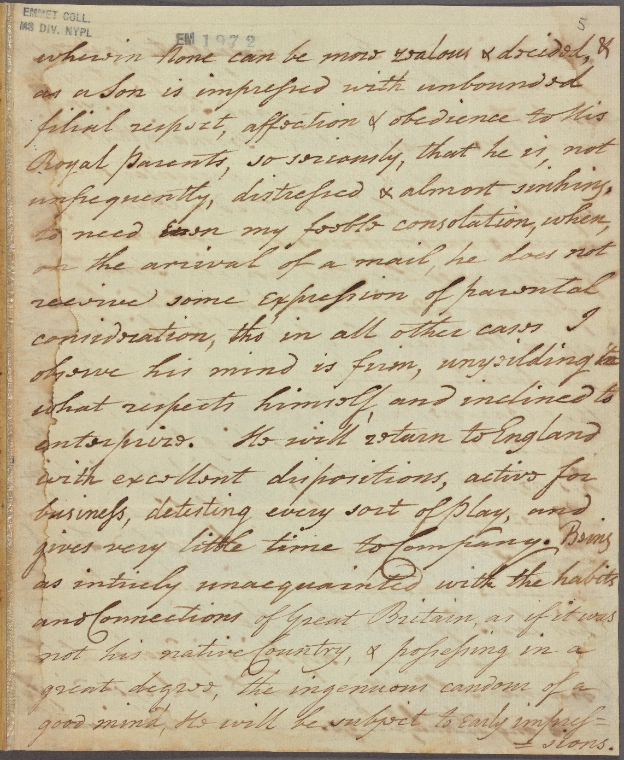 EMMET COLL.
MS DIV. NYPL
EM 1972
5
wherein None can be more zealous & decided, &
as a Son is impressed with unbounded
filial respect, affection & obedience to His
Royal Parents, so seriously, that he is, not
unfrequently, distressed & almost sinking,
to need even my feeble consolation, when,
on the arival of a mail, he does not
receive some Expression of parental
consideration, tho in all other cases I
observe his mind is firm, unyeilding in
what respects himself, and inclined to
enterprize. He will return to England
with excellent dispositions, active for
business, detesting every sort of Play, and
gives very little time to Company. Being
as intirely unacquainted with the habits
and Connections of Great Britain, as if it was
not his native Country, & possessing in a
great degree, the ingenuous candour of a
good mind, He will be subject to early impres=
=sions.